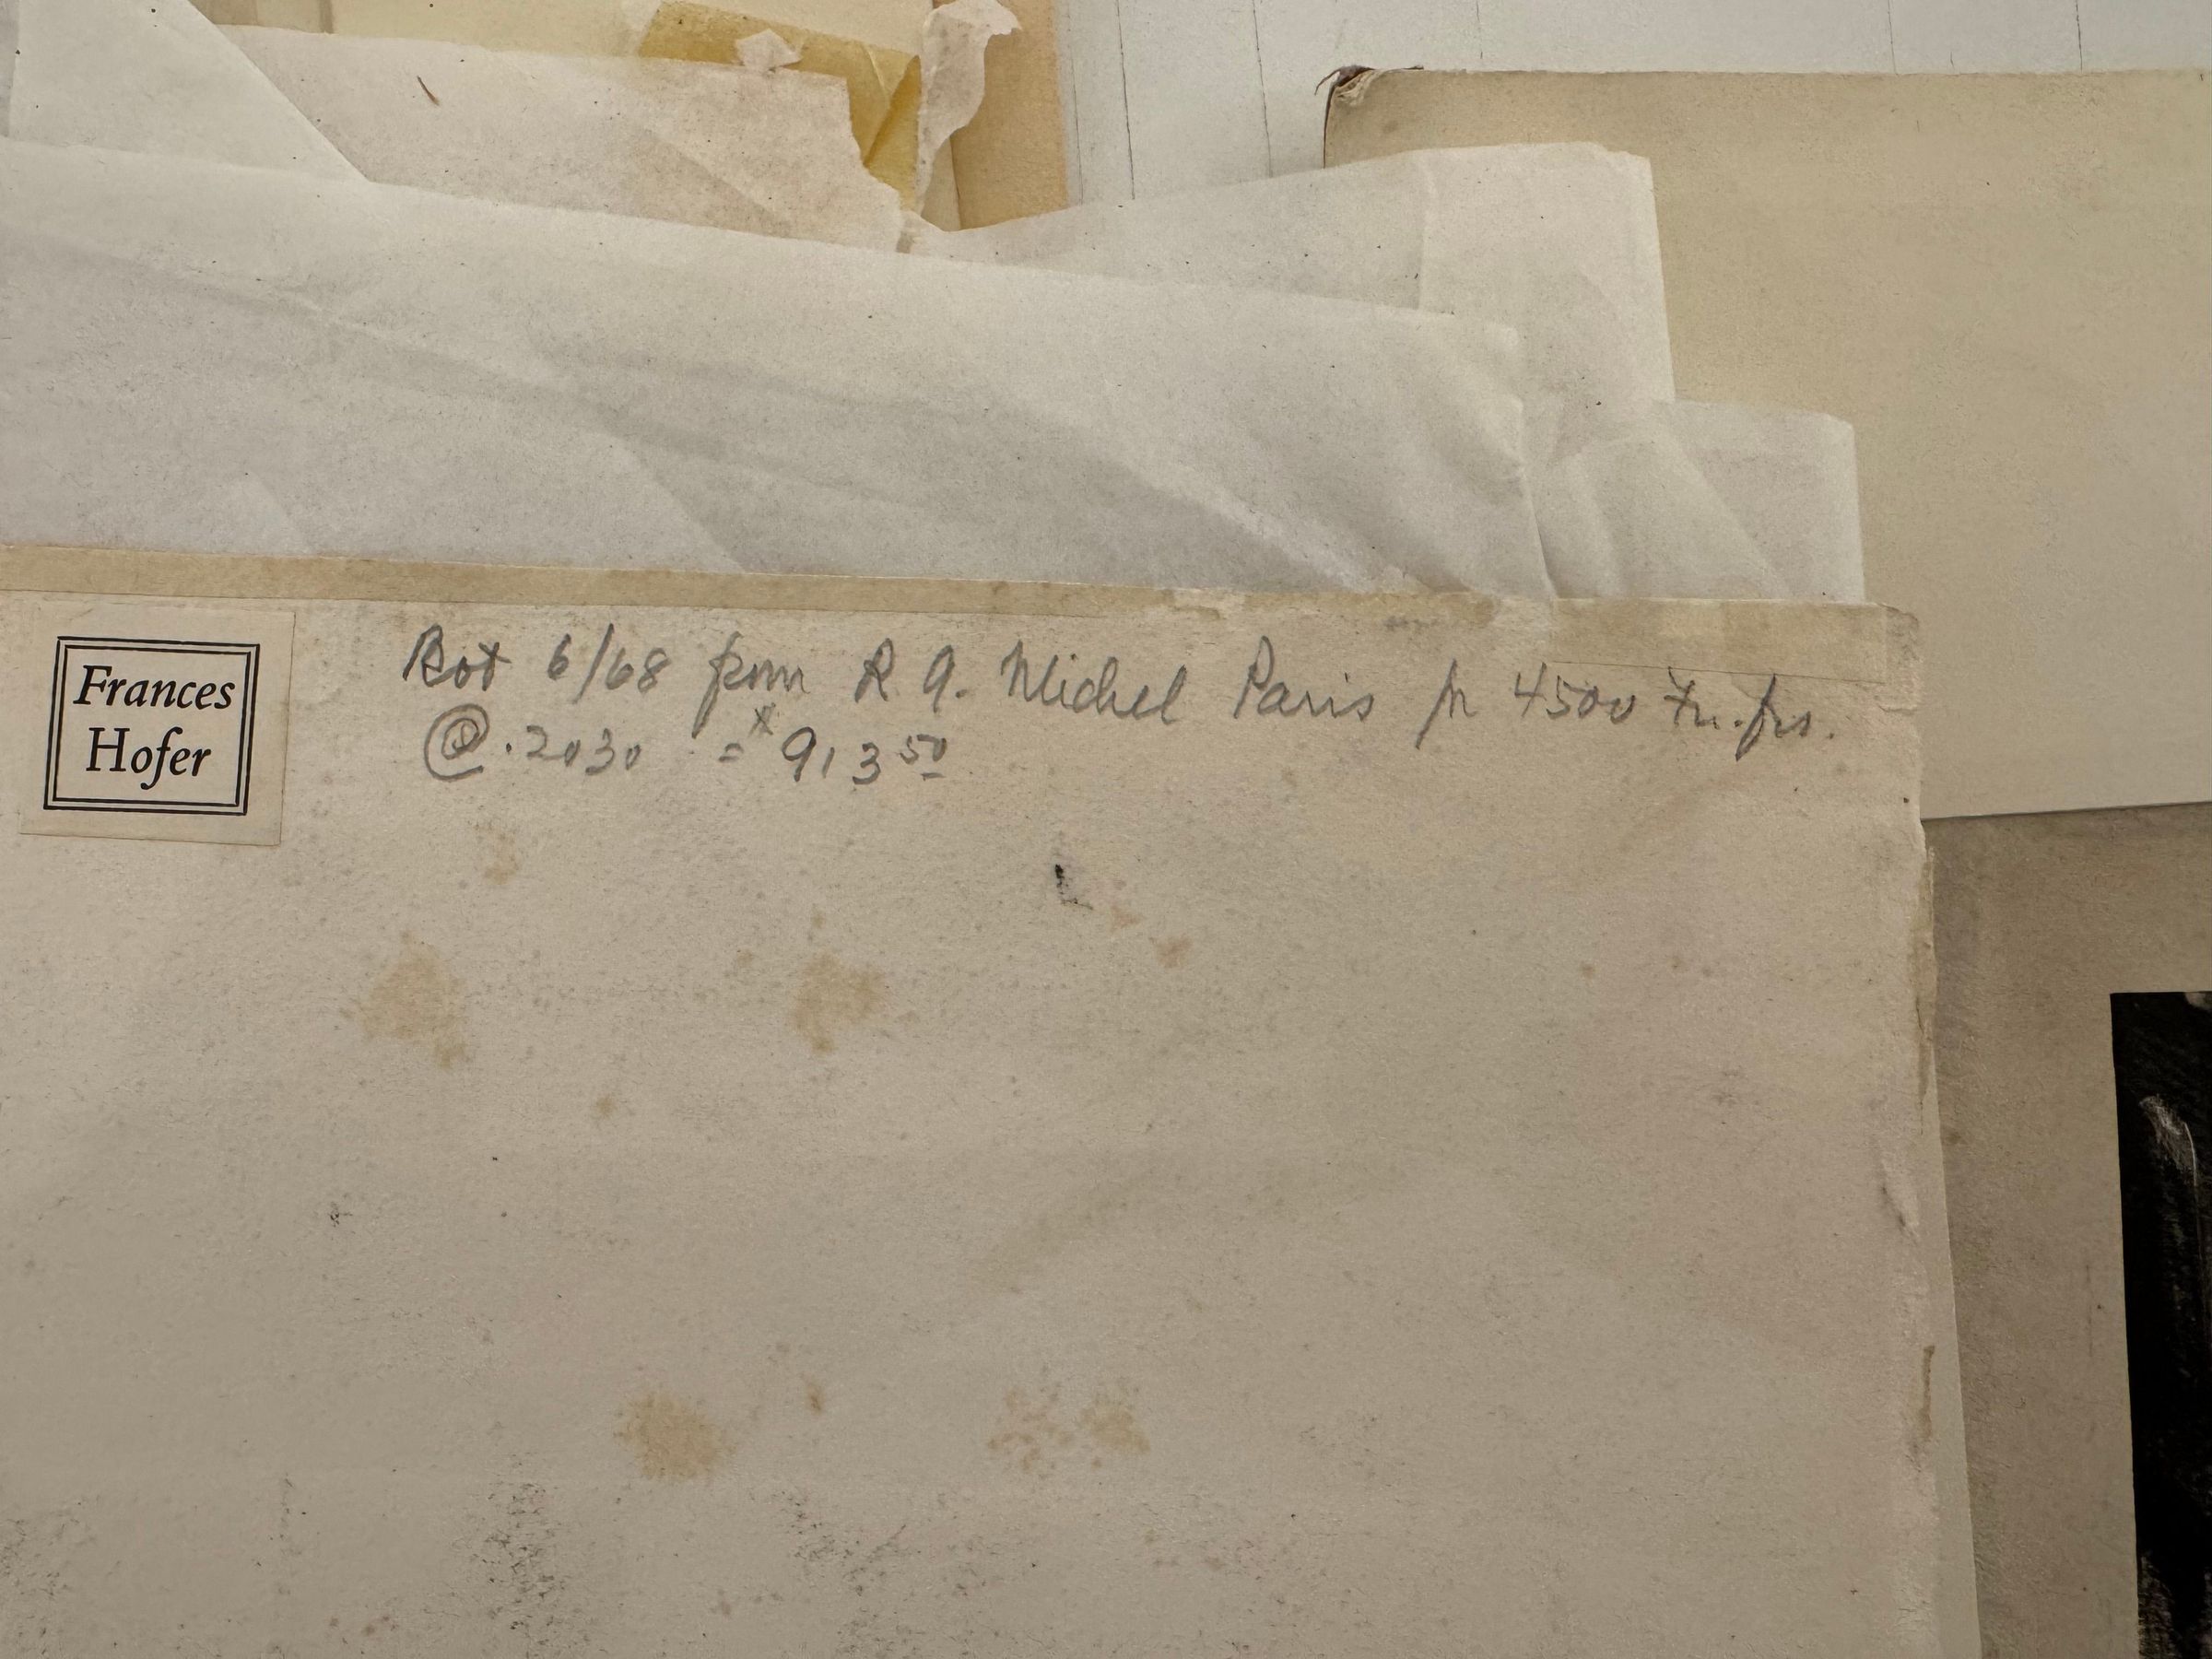 Frances
Hofer
Bot 6/68 from R G. Michel Paris for 4500 Fr. frs.
@ .2030 = $913 50